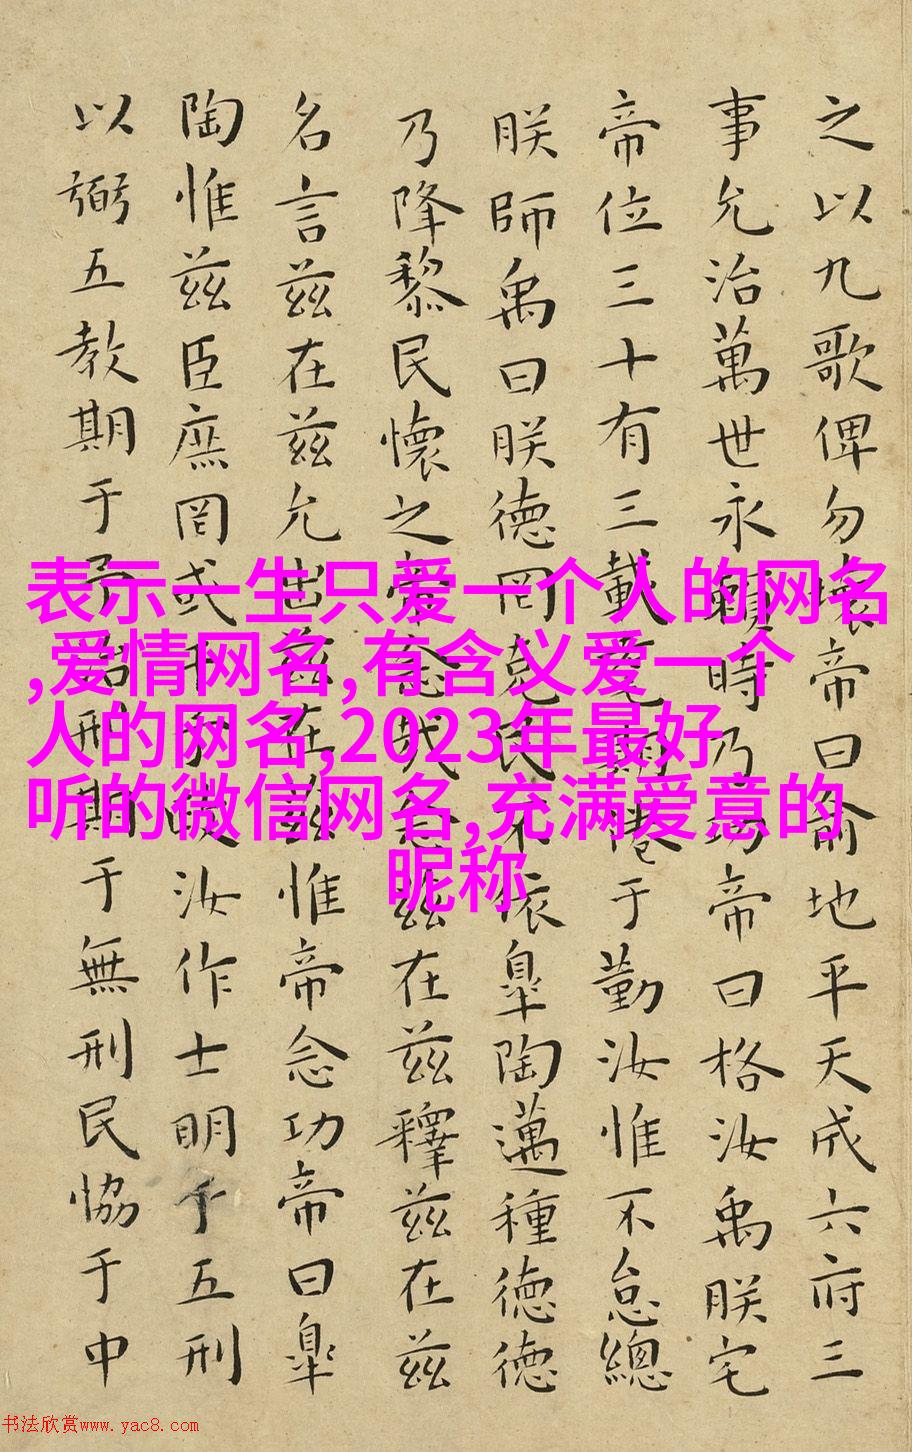 之以九歌俾勿壞帝曰俞地平天成六府三
事允治萬世永賴時乃功帝曰格汝禹朕宅
帝位三十有三載耄期倦于勤汝惟不怠總
朕師禹曰朕德罔克民不依皐陶邁種德德
乃降黎民懷之帝念哉念茲在茲釋茲在茲
名言茲在茲允出茲在茲惟帝念功帝曰皐
陶惟茲臣庶罔或干予政汝作士明于五刑
以弼五教期于予治刑期于無刑民恊于中
表示一生只爱一个人的网名
,爱情网名,有含义爱一个
人的网名,2023年最好
听的微信网名,充满爱意的
昵称
书法欣赏www.yac8.com